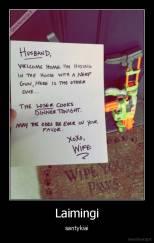 HUSBAND,
WELCOME HOME. I'M HIDING
IN THE HOUSE WITH A NERF
GUN, HERE IS THE OTHER
ONE...
THE LOSER COOKS
DINNER TONIGHT.
MAY THE ODDS BE EVER IN YOUR
FAVOR
XOXO,
WIFE
WIPE YOUR
PAWS
Laimingi
santykiai